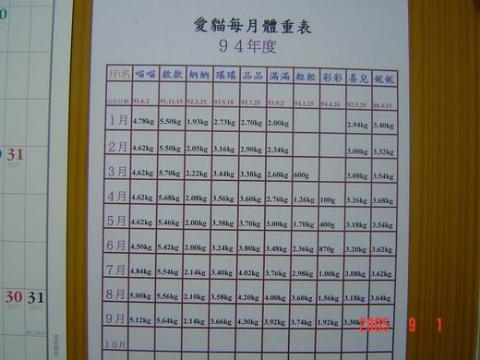 愛貓每月體重表
94年度
月\名 喵喵 款款 納納 瑤瑤 品品 滿滿 粒粒 彩彩 喜兒 妮妮
91.6.2 91.11.15 92.1.25 93.5.10 93.7.25 93.9.2 94.1.25 94.4.26 92.5.25 88.4.15
1月 4.78kg 5.50kg 1.93kg 2.73kg 2.70kg 2.00kg 2.94kg 3.40kg
2月 4.62kg 5.50kg 2.05kg 3.16kg 2.90kg 2.34kg 3.00kg 3.32kg
3月 4.62kg 5.70kg 2.22kg 3.44kg 3.38kg 2.60kg 600g 3.08kg 3.54kg
4月 4.62kg 5.68kg 2.08kg 3.56kg 3.60kg 2.76kg 1.26kg 100g 3.26kg 3.68kg
5月 4.62kg 5.46kg 2.00kg 3.38kg 3.75kg 3.00kg 1.70kg 400g 3.18kg 3.54kg
6月 4.50kg 5.42kg 2.00kg 3.24kg 3.80kg 3.48kg 2.36kg 870g 3.20kg 3.62kg
7月 4.84kg 5.54kg 2.14kg 3.40kg 4.02kg 3.76kg 2.98kg 1.00kg 3.08kg 3.62kg
8月 5.00kg 5.56kg 2.10kg 3.58kg 4.20kg 4.00kg 3.60kg 1.56kg 3.18kg 3.64kg
9月 5.12kg 5.64kg 2.14kg 3.66kg 4.30kg 3.92kg 3.74kg 1.92kg 3.30kg
10月
31
30 31
2005 9 1